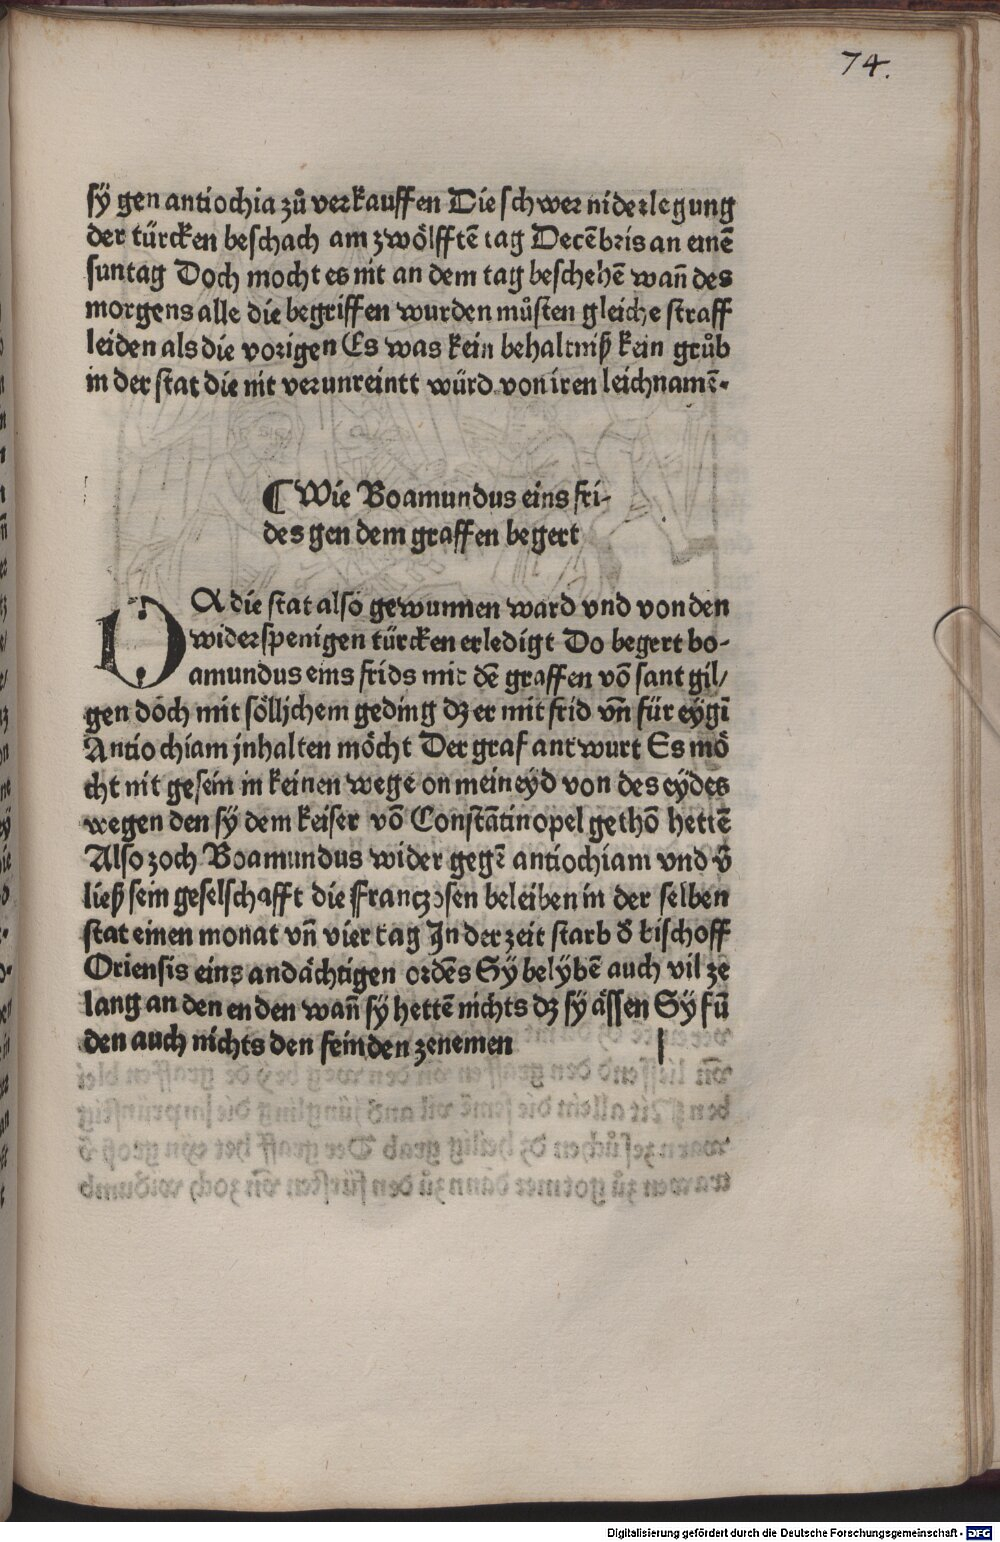 74.
sÿ gen antiochia zů verkauffen Die schwer niderlegung
der türcken beschach am zwölfftē tag Decēbris an einē
suntag Doch mocht es nit an dem tag beschehē wañ des
morgens alle die begriffen wurden můsten gleiche straff
leiden als die vorigen Es was kein behaltniß kein grůb
in der stat die nit verunreintt würd von iren leichnamē.
¶ Wie Boamundus eins fri-
des gen dem graffen begert
DA die stat also gewunnen ward vnd von den
widerspenigen türcken erledigt Do begert bo-
amundus eins frids mit dē graffen vō sant gil/
gen doch mit söllichem geding dz er mit frid vñ für eygī
Antiochiam jnhalten möcht Der graf antwurt Es mö
cht nit gesein in keinen wege on meineyd von des eydes
wegen den sÿ dem keiser vō Constātinopel gethō hettē
Also zoch Boamundus wider gegē antiochiam vnd v̄
ließ sein geselschafft die Frantzosen beleiben in der selben
stat einen monat vñ vier tag In der zeit starb d̄ bischoff
Oriensis eins andächtigen ordēs Sÿ belÿbē auch vil ze
lang an den enden wañ sÿ hettē nichts dz sÿ ässen Sÿ fū
den auch nichts den feinden zenemen
Digitalisierung gefördert durch die Deutsche Forschungsgemeinschaft - DFG